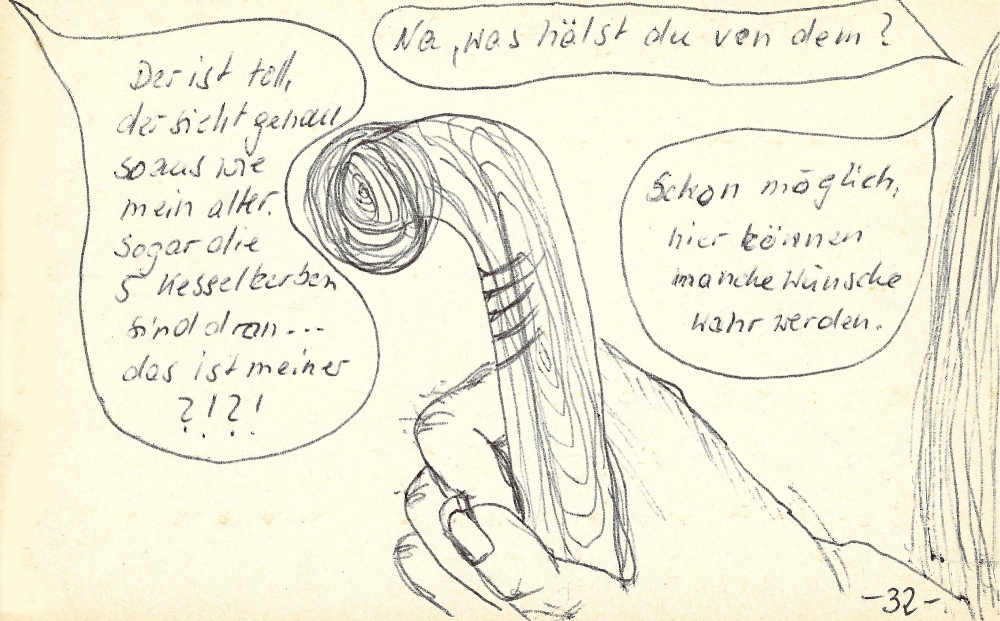 Na, was hälst du von dem?
Der ist toll,
der sieht genau
so aus wie
mein alter.
Sogar die
5 Kesselkerben
sind dran...
das ist meiner
?!?!
Schon möglich,
hier können
manche Wünsche
wahr werden.
-32-